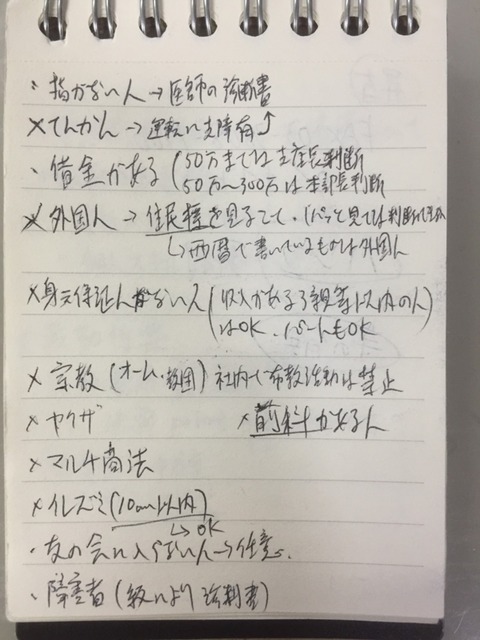 ・指がない人→医師の診断書
×てんかん→運転に支障有↑
・借金がある(50万までは支店長判断
50万〜300万は本部長判断
×外国人→住民票を見るてて.(パッと見では判断できない
↳西暦で書いているものは外国人
×身元保証人がない人(収入がある3親等以内の人)
はOK.パートもOK
×宗教(オーム・教団)社内で布教活動は禁止
×ヤクザ ×前科がある人
×マルチ商法
×イレズミ(10cm以内)
↳OK
・友の会に入らない人→任意。
・障害者(級により診断書)